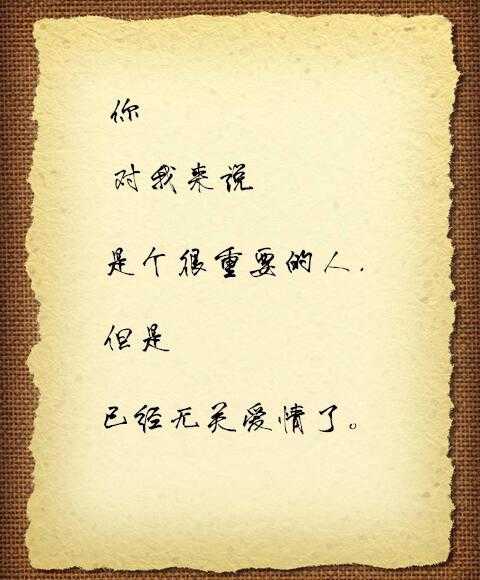 你
对我来说
是个很重要的人.
但是
已经无关爱情了。